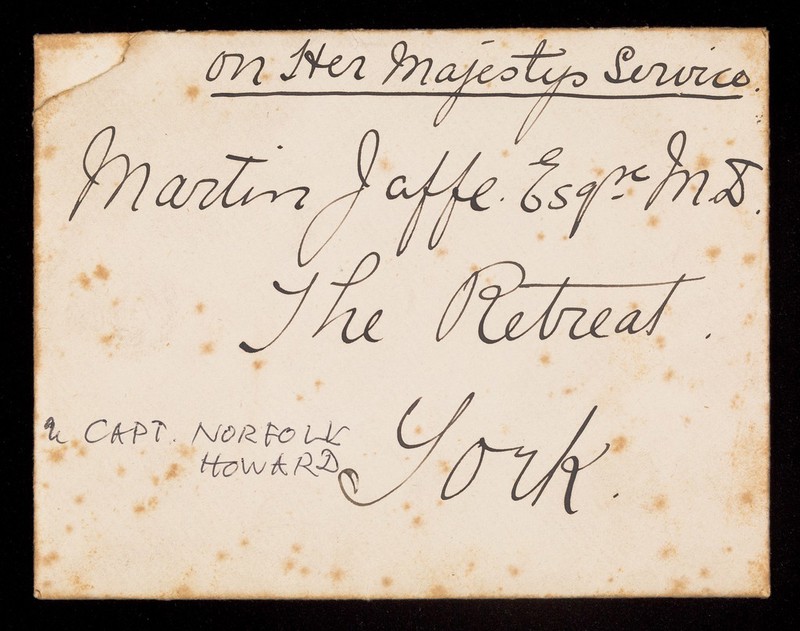 On Her Majestys Service.
Martin Jaffe. Esqre M.D.
The Retreat.
York.
CAPT. NORFOLK
HOWARD